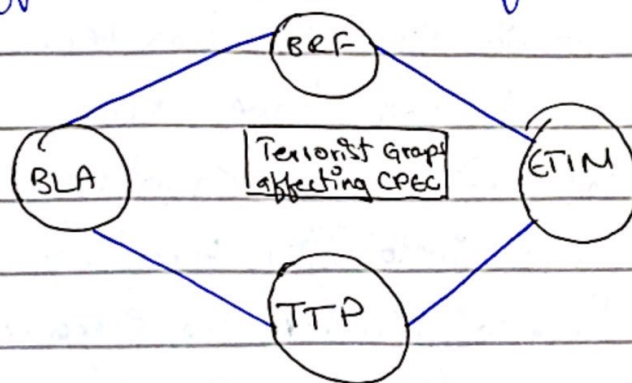 BRF
Terrorist Graps
affecting CPEC
BLA
ETIM
TTP